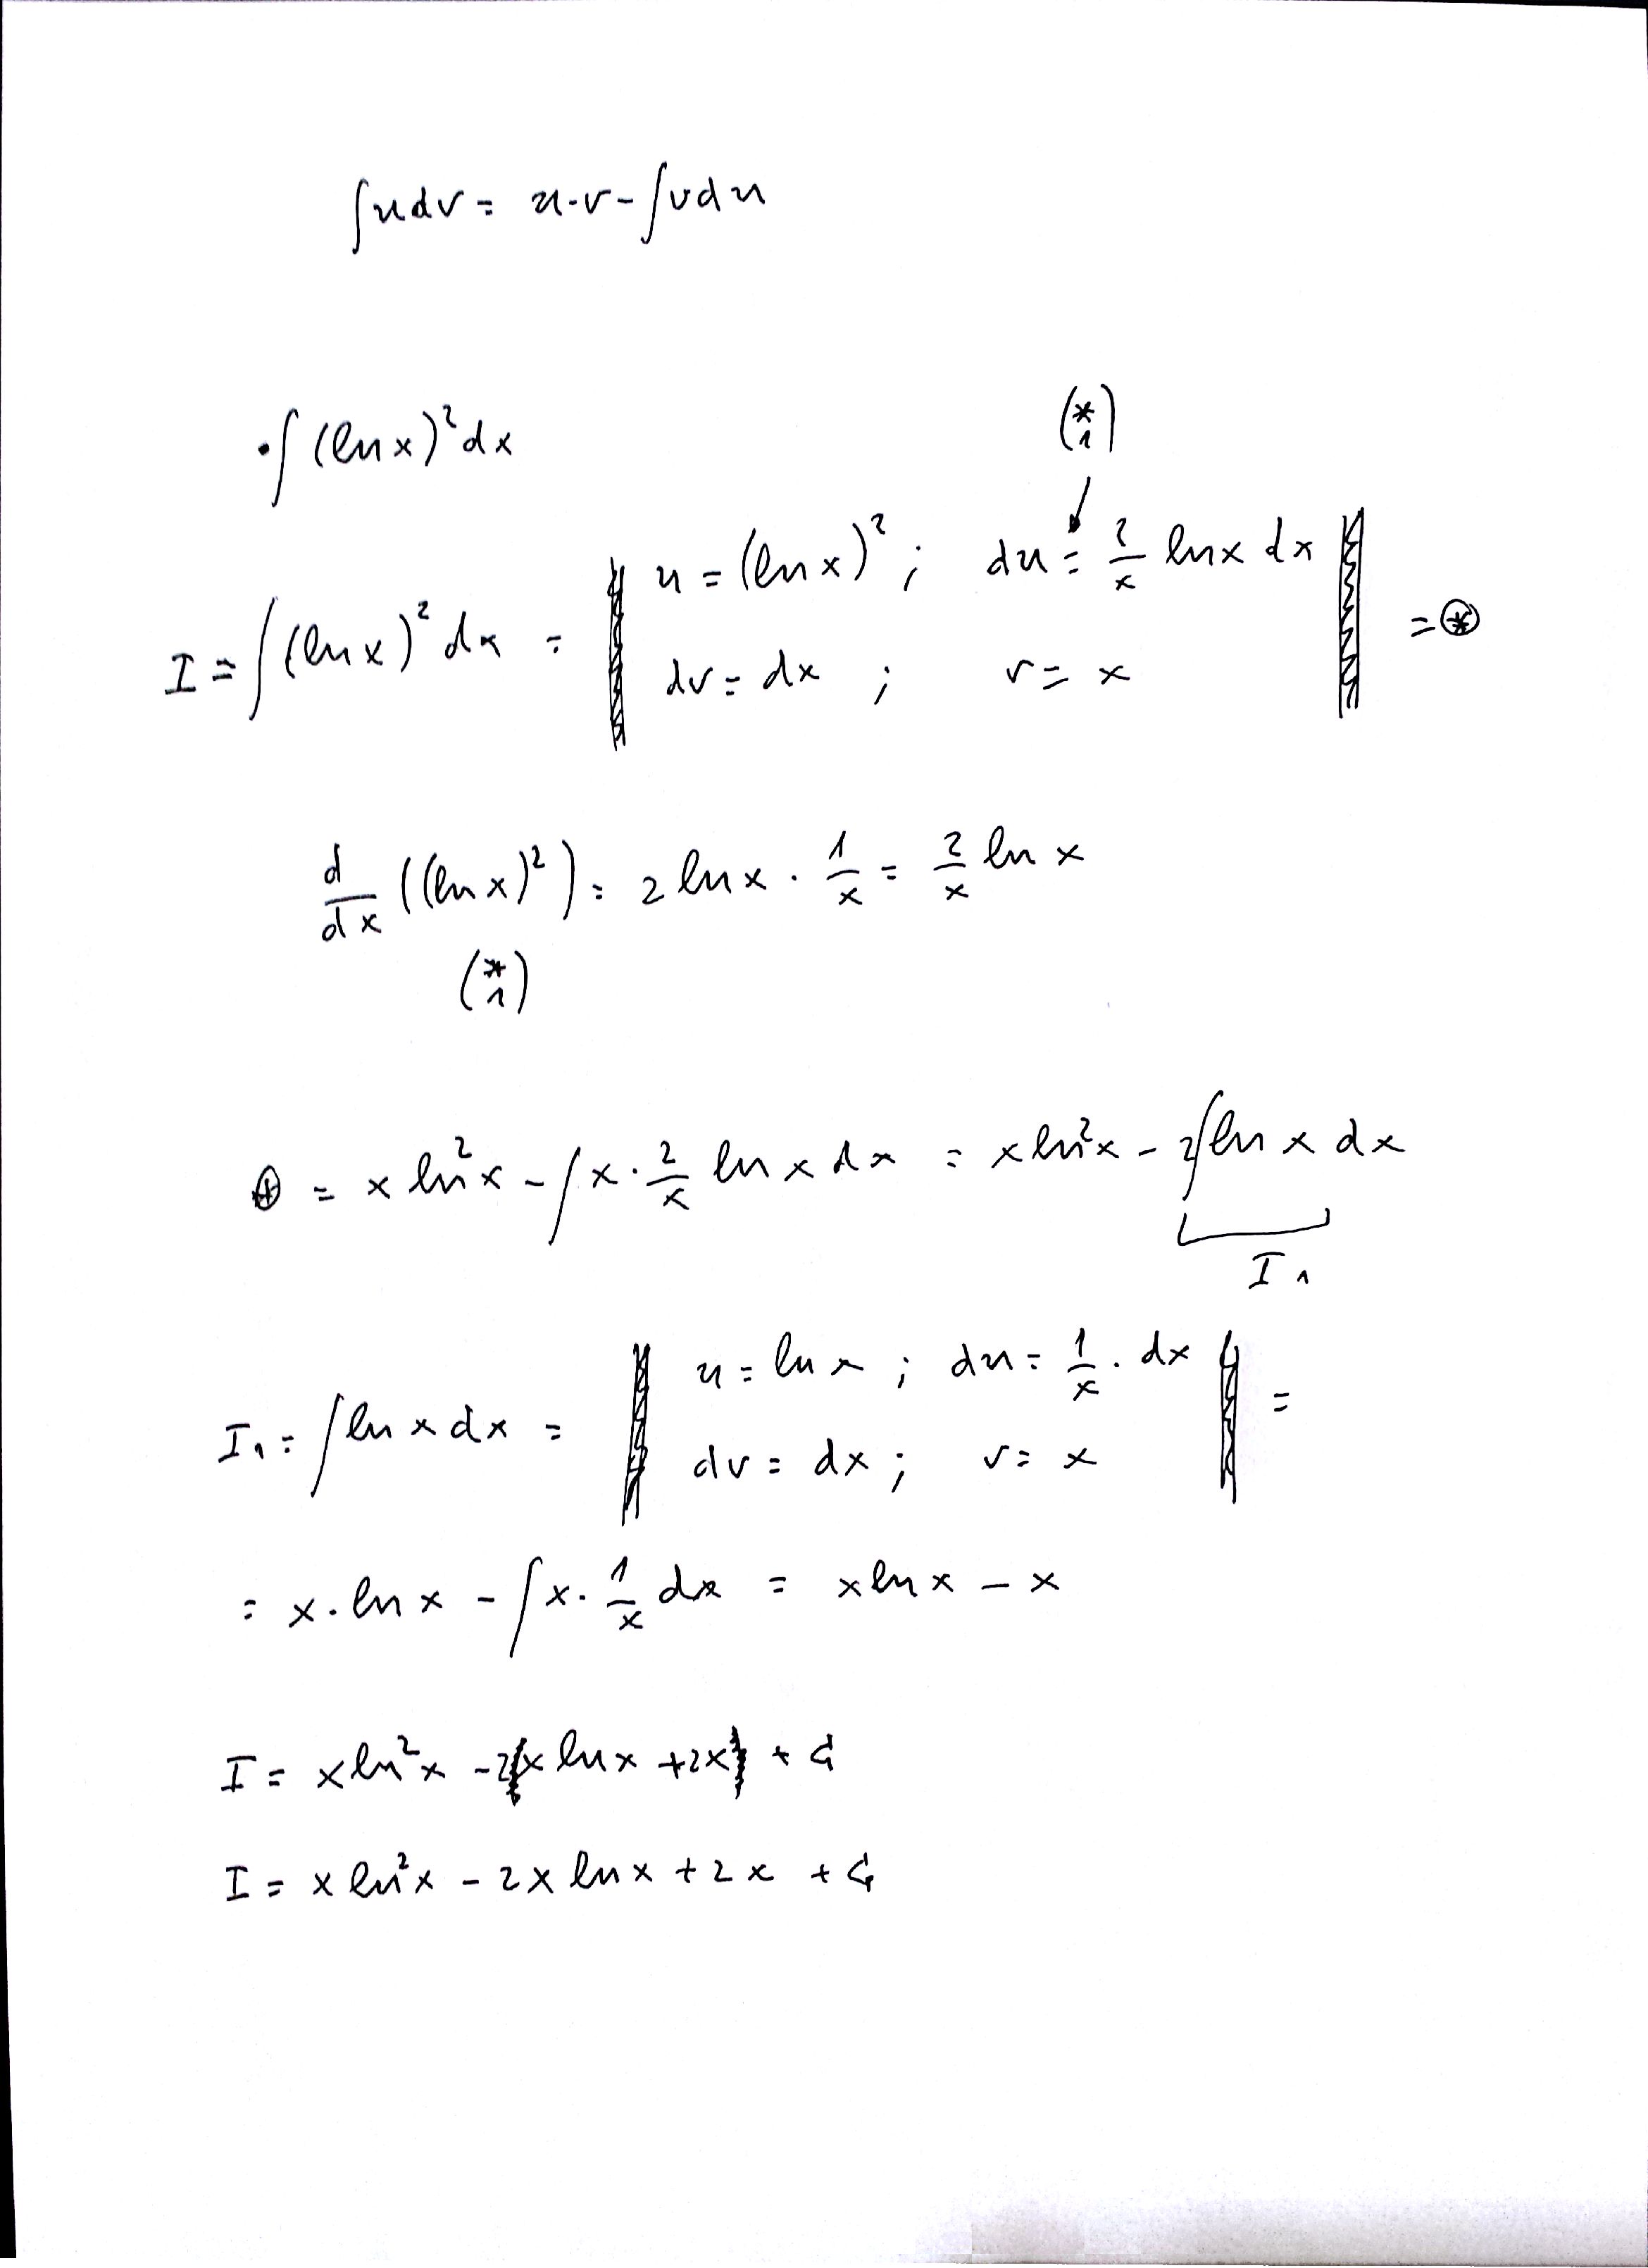 ∫udv = u·v-∫vdu
·∫(lnx)²dx
(*1)
I = ∫(lnx)²dx = || u = (lnx)² ; du = 2/x lnx dx || = ⊛
dv = dx ; v = x
d/dx ((lnx)²) = 2 lnx · 1/x = 2/x ln x
(*1)
⊛ = x ln²x - ∫x · 2/x ln x dx = x ln²x - 2∫ln x dx
I₁
I₁ = ∫ln x dx = || u = ln x ; du = 1/x · dx || =
dv = dx ; v = x
= x · ln x - ∫x · 1/x dx = x ln x - x
I = x ln²x - 2x ln x + 2x + C
I = x ln²x - 2x ln x + 2x + C